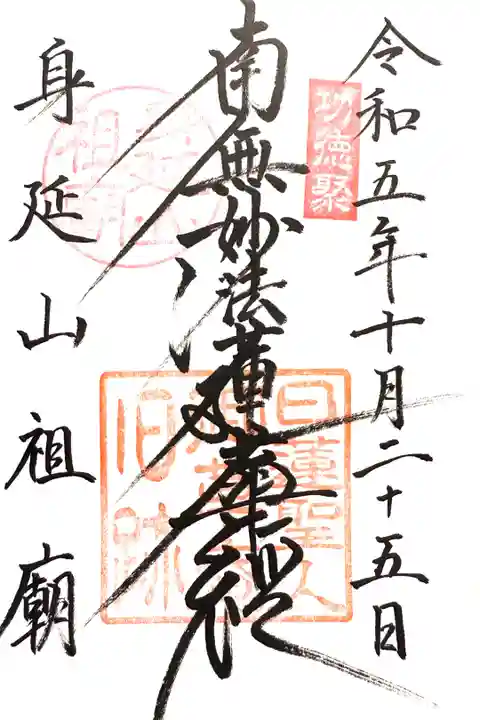 令和五年十月二十五日
功徳聚
南無妙法蓮華経
日蓮聖人
旧跡
身延山祖廟